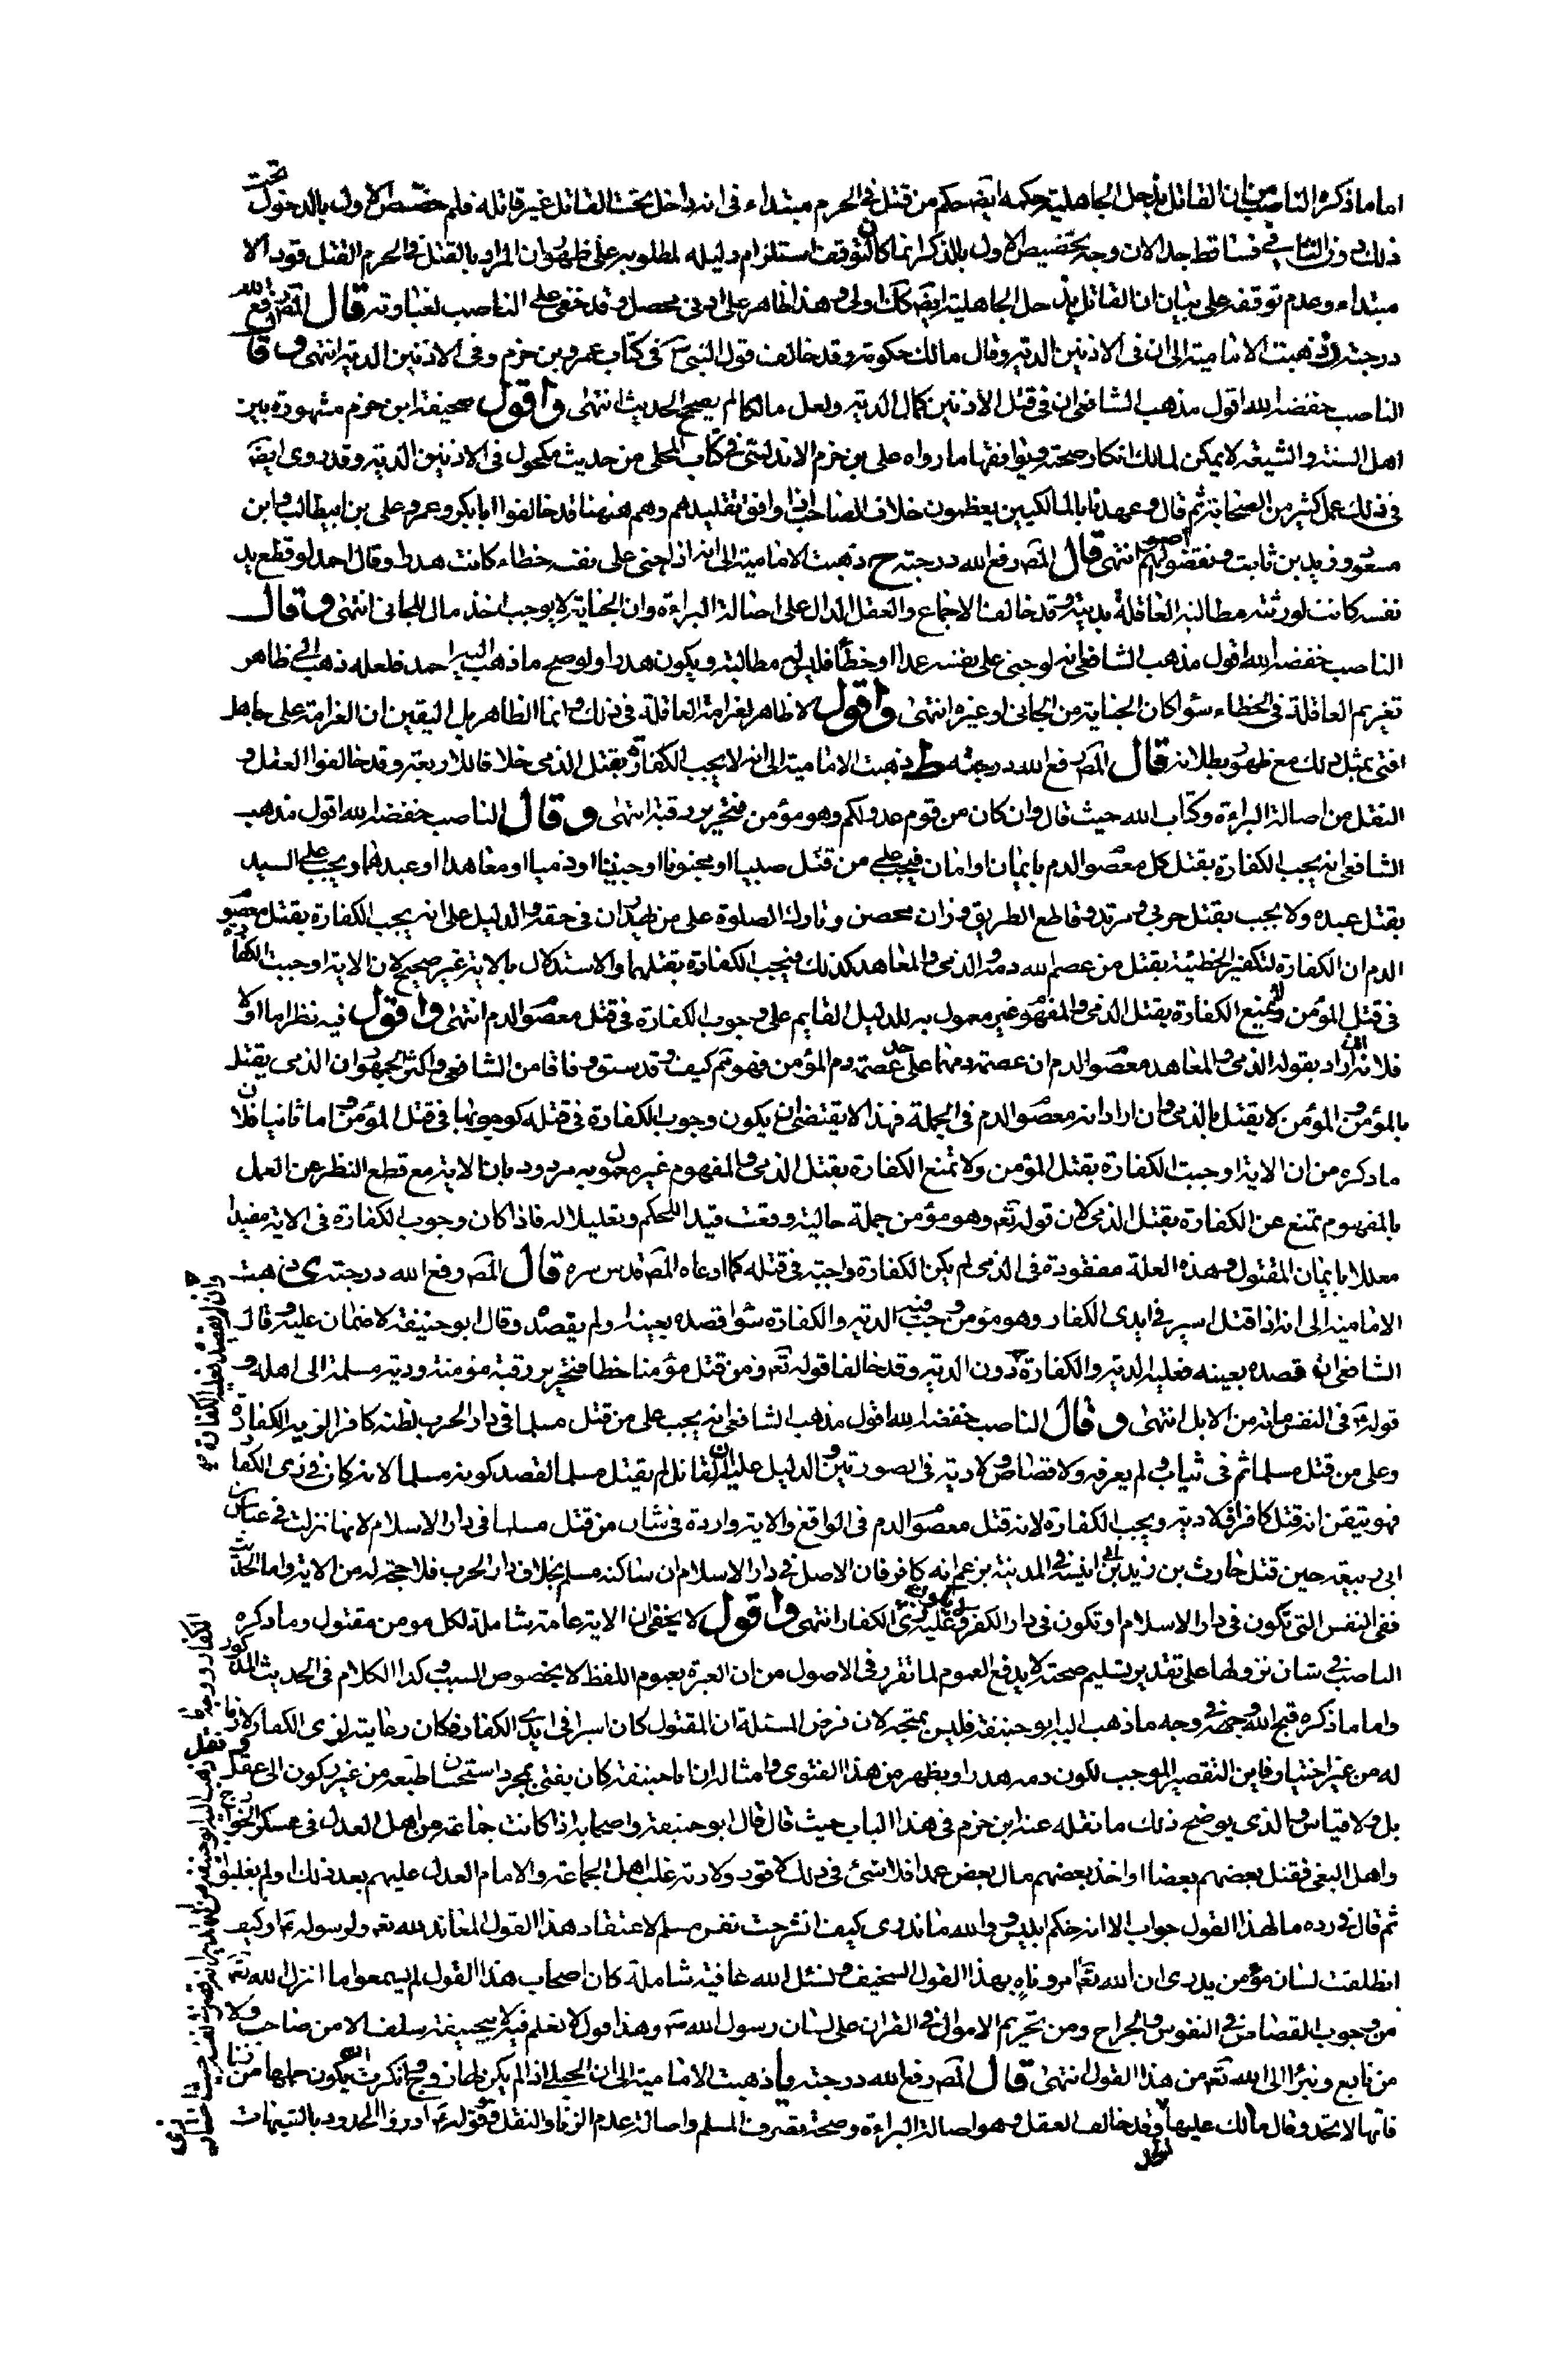 اما ما ذكره الناصب من ان القاتل بذحل الجاهلية حكمه ايضا حكم من قتل في الحرم مبتداء في انه داخل تحت القاتل غير قاتله فلم خصص الاول بالدخول تحت
ذلك دون الثاني فساقط جدا لان وجه تخصيص الاول بالذكر انما كان لتوقف استلزام دليله لمطلوبه على ظهور ان المراد بالقتل في الحرم القتل قودا لا
مبتداء وعدم توقفه على بيان ان القاتل بذحل الجاهلية ايضا كك اولى وهذا ظاهر على ادنى محصل وقد خفى على الناصب لغباوته قال المص رفع الله
درجته ز ذهبت الامامية الى ان في الاذنين الدية وقال مالك حكومة وقد خالف قول النبي ص في كتاب عمرو بن حزم وفي الاذنين الدية انتهى وقال
الناصب خفضه الله اقول مذهب الشافعي ان في قتل الاذنين كمال الدية ولعل مالكا لم يصح الحديث انتهى واقول صحيفة ابن حزم مشهورة بين
اهل السنة والشيعة لا يمكن لمالك انكار صحته ويوافقها ما رواه علي بن حزم الاندلسي في كتاب المحلى من حديث مكحول في الاذنين الدية وقد روى ايضا
في ذلك عمل كثير من الصحابة ثم قال وعهدنا بالمالكيين يعظمون خلاف الصاحب اذا وافق تقليدهم وهم ههنا قد خالفوا ابا بكر وعمر وعلي بن ابيطالب وابن
مسعود وزيد بن ثابت ونقضوا اصولهم انتهى قال المص رفع الله درجته ح ذهبت الامامية الى انه اذا جنى على نفسه خطاء كانت هدرا وقال احمد لو قطع يد
نفسه كانت لورثته مطالبة العاقلة بديته وقد خالف الاجماع والعقل الدال على اصالة البراءة وان الجناية لا يوجب اخذ مال للجاني انتهى وقال
الناصب خفضه الله اقول مذهب الشافعي انه لو جنى على نفسه عمدا او خطأ فليس لهم مطالبة ويكون هدرا ولو صح ما ذهب اليه احمد فلعله ذهب الى ظاهر
تغريم العاقلة في الخطاء سواء كان الجناية من الجاني او غيره انتهى واقول لا ظاهر لغرامة العاقلة في ذلك وانما الظاهر بل اليقين ان الغرامة على جاهل
افتى بمثل ذلك مع ظهور بطلانه قال المص رفع الله درجته ط ذهبت الامامية الى انه لا يجب الكفارة بقتل الذمي خلافا للاربعة وقد خالفوا العقل و
النقل من اصالة البراءة وكتاب الله حيث قال وان كان من قوم عدو لكم وهو مؤمن فتحرير رقبة انتهى وقال الناصب خفضه الله اقول مذهب
الشافعي انه يجب الكفارة بقتل كل معصوم الدم بايمان او امان فيجب على من قتل صبيا او مجنونا او جنينا او ذميا او معاهدا او عبدهما ويجب على السيد
بقتل عبده ولا يجب بقتل حربي ومرتد وقاطع الطريق وزان محصن وتارك الصلوة على من في حقه والدليل على انه يجب الكفارة بقتل معصوم
الدم ان الكفارة لتكفير الخطيئة بقتل من عصم الله دمه والذمي والمعاهد كذلك فيجب الكفارة بقتلهما والاستدلال بالاية غير صحيح لان الاية اوجبت الكفارة
في قتل المؤمن ولا يمنع الكفارة بقتل الذمي والمفهوم غير معمول به للدليل القايم على وجوب الكفارة في قتل معصوم الدم انتهى واقول فيه نظر اما اولا
فلانه ان اراد بقوله الذمي والمعاهد معصوم الدم ان عصمة دمهما على حد عصمة دم المؤمن فهو تم كيف وقد سبق وفاقا من الشافعي واكثر الجمهور ان الذمي يقتل
بالمؤمن والمؤمن لا يقتل بالذمي وان اراد انه معصوم الدم في الجملة فهذا لا يقتضي ان يكون وجوب الكفارة في قتله كوجوبها في قتل المؤمن واما ثانيا فلان
ما ذكره من ان الاية اوجبت الكفارة بقتل المؤمن ولا تمنع الكفارة بقتل الذمي والمفهوم غير معمول به مردود بان الاية مع قطع النظر عن العمل
بالمفهوم تمنع عن الكفارة بقتل الذمي لان قوله تعه وهو مؤمن جملة حالية وقعت قيدا للحكم وتعليلا له فاذا كان وجوب الكفارة في الاية مفيدا
معللا بايمان المقتول وهذه العلة مفقودة في الذمي لم يكن الكفارة واجبة في قتله كما ادعاه المص قدس سره قال المص رفع الله درجته ى ذهبت
الامامية الى انه اذا قتل اسير في ايدى الكفار وهو مؤمن وجب فيه الدية والكفارة سواء قصده بعينه او لم يقصده وقال ابو حنيفة لا ضمان عليه وقال
الشافعي ان قصده بعينه فعليه الدية والكفارة دون الدية وقد خالفا قوله تعه ومن قتل مؤمنا خطا فتحرير رقبة مؤمنة ودية مسلمة الى اهله و
قوله ص في النفس مائة من الابل انتهى وقال الناصب خفضه الله اقول مذهب الشافعي انه يجب على من قتل مسلما في دار الحرب بظنه كافرا لزيه الكفارة
وعلى من قتل مسلما ثم في ثياب ولم يعرفه ولا قصاص ولا دية في الصورتين والدليل عليه ان القاتل لم يقتل مسلما لقصد كونه مسلما لانه كان في زى الكفار
فهو تيقن انه قتل كافرا فلا دية ويجب الكفارة لانه قتل معصوم الدم في الواقع والاية واردة في شان من قتل مسلما في دار الاسلام لانها نزلت في عياش بن
ابي ربيعة حين قتل حارث بن زيد بن ابي انيسة في المدينة بزعم انه كافر فان الاصل في دار الاسلام ان ساكنه مسلم بخلاف دار الحرب فلا حجة له من الاية واما الحديث
ففي النفس التي تكون في دار الاسلام او تكون في دار الكفر وعليه زى الكفار انتهى واقول لا يخفى ان الاية عامة شاملة لكل مومن مقتول وما ذكره
الناصب في شان نزولها على تقدير تسليم صحته لا يدفع العموم لما تقرر في الاصول من ان العبرة بعموم اللفظ لا بخصوص السبب وكذا الكلام في الحديث المذكور
واما ما ذكره قبح الله وجهه في وجه ما ذهب اليه ابو حنيفة فليس بمتجه لان فرض المسئلة ان المقتول كان اسيرا في ايدى الكفار فكان رعايته لزى الكفار لازما
له من غير اختيار فاين التقصير الموجب لكون دمه هدرا ويظهر من هذا الفتوى وامثاله ان ابا حنيفة كان يفتى بمجرد استحسان طبعه من غير ركون الى عقل ونقل
بل ولا قياس والذى يوضح ذلك ما نقله عنه ابن حزم في هذا الباب حيث قال قال ابو حنيفة واصحابه اذا كانت جماعة من اهل العدل في عسكر الخوارج
واهل البغى فقتل بعضهم بعضا او اخذ بعضهم مال بعض عمدا فلا شئ في ذلك لا قود ولا دية غلب اهل الجماعة والامام العدل عليهم بعد ذلك او لم يغلبوا
ثم قال في رده ما لهذا القول جواب الا انه حكم ابليس والله ما ندرى كيف انشرحت نفس مسلم لاعتقاد هذا القول المعاند لله تعه ولرسوله ص او كيف
انطلقت لسان مؤمن يدرى ان الله تعه امره وناه بهذا القول السخيف ونسئل الله عافية شاملة كان اصحاب هذا القول لم يسمعوا ما انزل الله تعه
من وجوب القصاص في النفوس والجراح ومن تحريم الاموال في القران على لسان رسول الله ص وهذا قول لا نعلم فيه لا بيحنيفة سلف الا من صاحب ولا
من تابع ونبرأ الى الله تعه من هذا القول انتهى قال المص رفع الله درجته يا ذهبت الامامية الى ان الحبلى اذا لم يكن لها زوج وانكرت ان يكون حملها من زنا
فانها لا تحد وقال مالك عليها الحد وقد خالف العقل وهو اصالة البراءة وصحة تصرف المسلم واصالة عدم الزنا والنقل وهو قوله ع ادرؤا الحدود بالشبهات